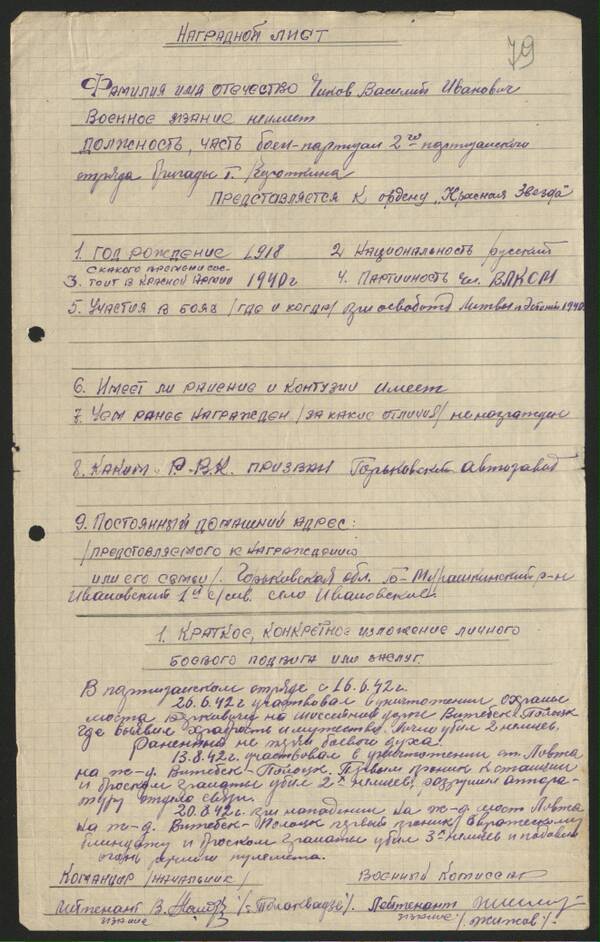 НАГРАДНОЙ ЛИСТ
79
Фамилия имя отечество Чиков Василий Иванович
Военное звание неимеет
должность, часть боец-партизан 2го партизанского
отряда бригады т. Короткина
Представляется к ордену „Красная Звезда"
1. Год рождение 1918 2. Национальность русский
3. с какого времени состоит в Красной Армии 1940г 4. Партийность чл. ВЛКСМ
5. Участия в боях /где и когда/ при освобожд Литвы и Эстонии 1940
6. Имеет ли ранение и контузии имеет
7. Чем ранее награжден /за какие отличия/ не награжден
8. Каким Р.В.К. призван Горьковский автозавод
9. Постоянный домашний адрес:
/представляемого к награждению
или его семьи/. Горьковская обл. Б-Мурашкинский р-н
Ивановский 1й с/сов. село Ивановское.
1. Краткое, конкретное изложение личного
боевого подвига или заслуг.
В партизанском отряде с 16.6.42г.
26.6.42г участвовал в уничтожении охраны
моста на шоссейной дороге Витебск-Полоцк
где выявил храбрость и мужество. Лично убил 2 немцев.
Раненный не терял боевого духа.
13.8.42г. участвовал в уничтожении ст. Ловжа
на ж-д. Витебск-Полоцк. Первым проник к станции
и броском гранаты убил 2х немцев, разрушил аппара-
туру отдела связи.
20.8.42г. при нападении на ж-д мост Ловжа
на ж-д. Витебск-Полоцк первый проник к вражескому
блиндажу и броском гранаты убил 3х немцев и подавил
огонь ручного пулемета.
Командир /начальник/ Военный Комиссар
лейтенант В. Лейтенант
звание звание /Жижов/.